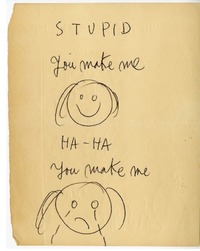 STUPID
You make me
HA-HA
You make me